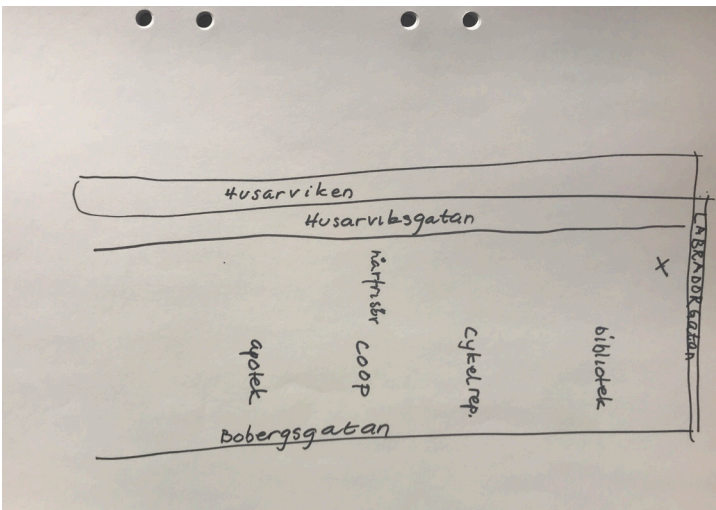 Husarviken
Husarviksgatan
LABRADORgatan
X
hårfrisör
apotek
COOP
Cykelrep.
bibliotek
Bobergsgatan